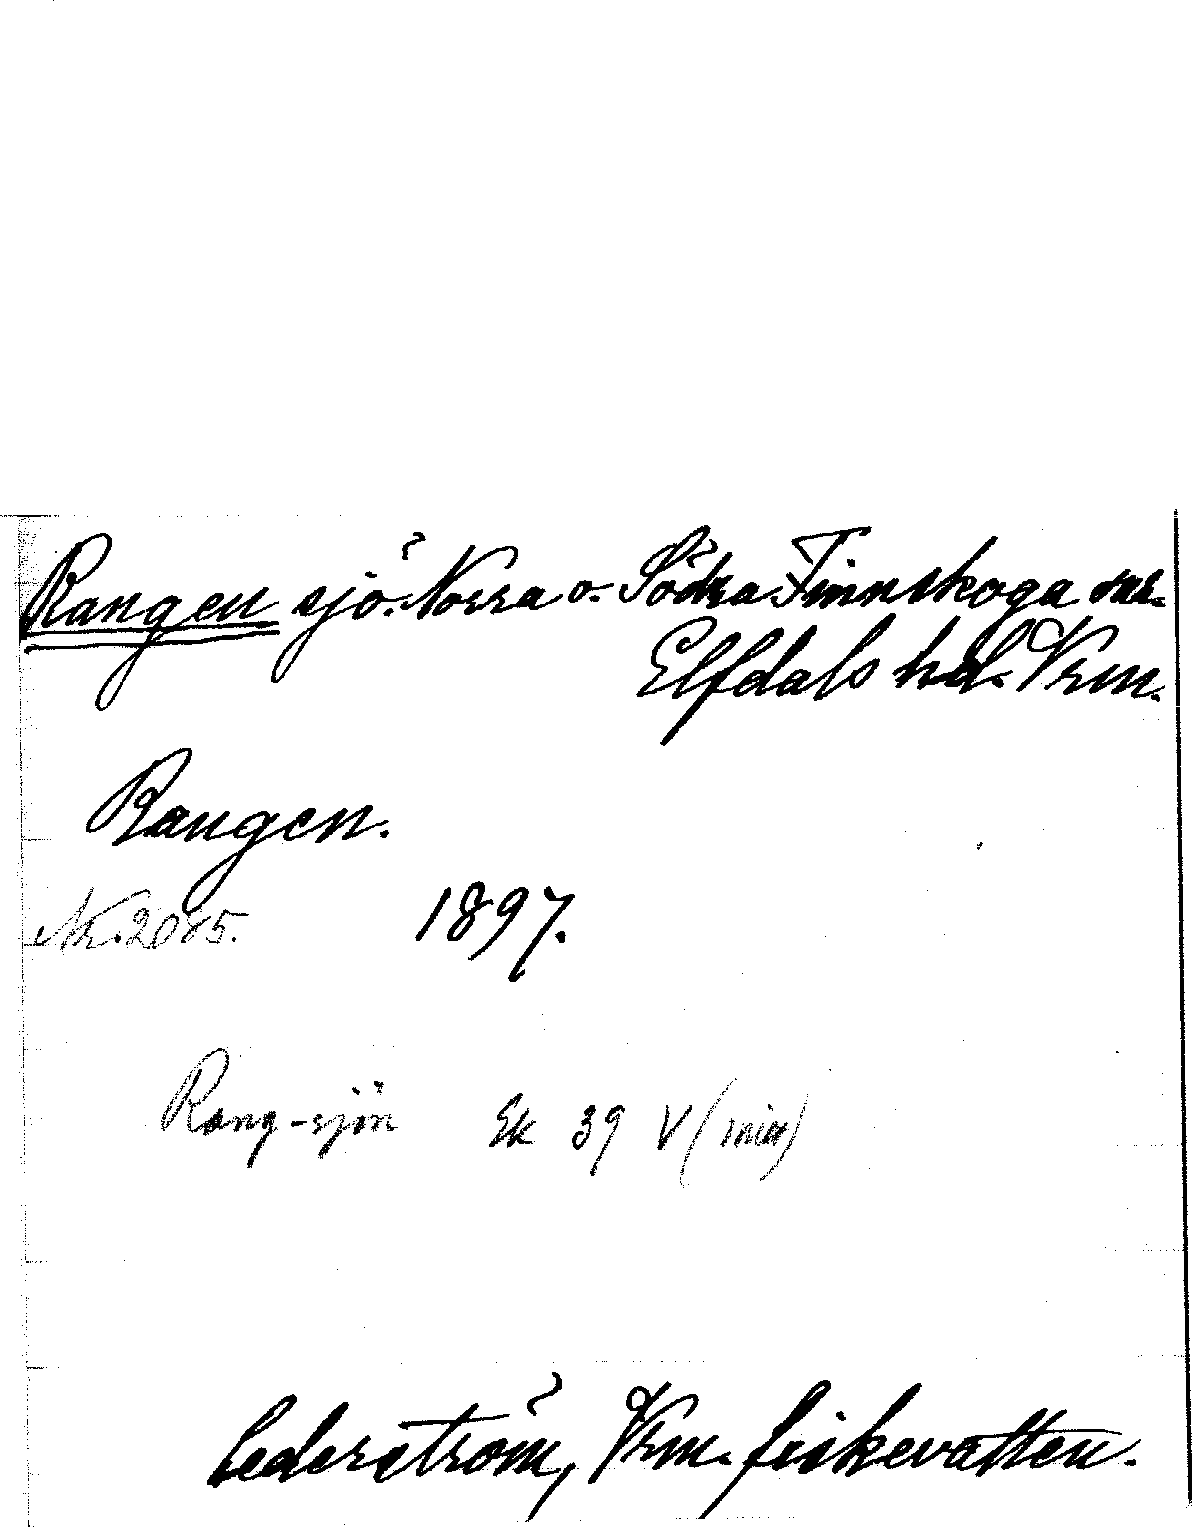 Rangen sjö. Norra o. Södra Finnskoga snr.
Elfdals hd. Vrm.
Rangen.
Nr. 2085. 1897.
Rang-sjön Ek 39 V (mitt)
Cederström, Vrm. fiskevatten.